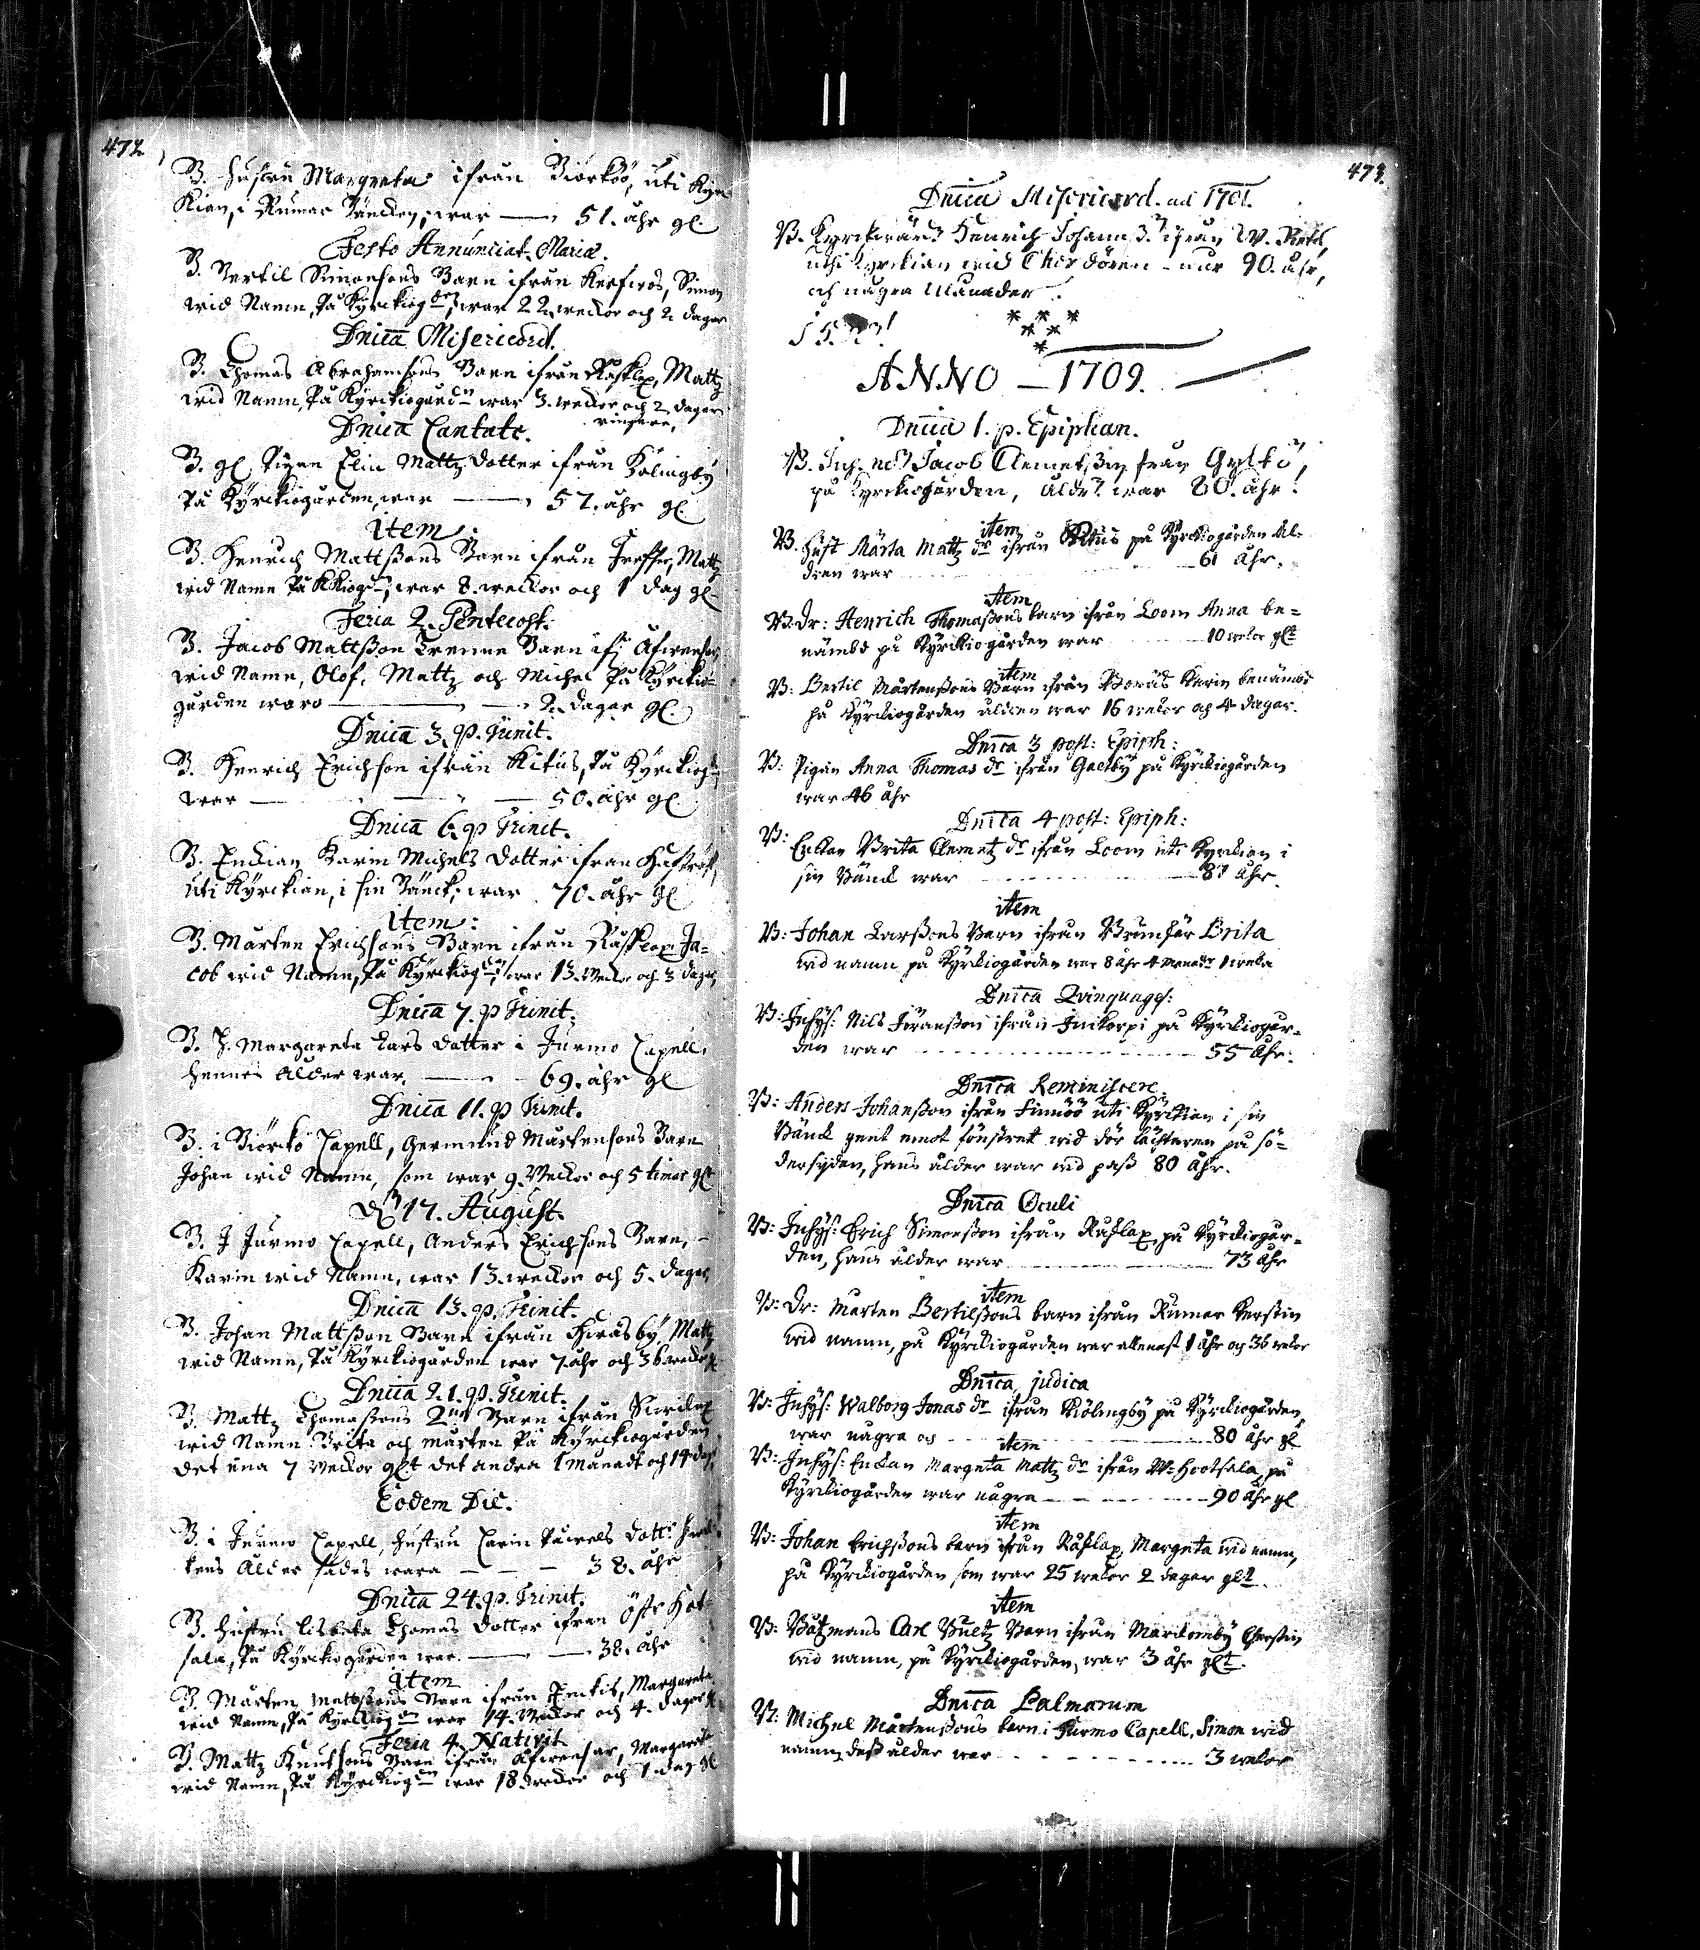 472
B. Hustru Margreta ifrån Biörköö, uti Kyr-
kian, i Rumar bäncken, war — 51. åhr gl.
Festo Annunciat. Mariæ.
B. Bertil Simonsons Barn ifrån Simon
wid Namn, På Kyrckiogdn, war 22. weckor och 2 dagar
Dnica Misericord.
B. Thomas Abrahamsons Barn ifrån Råsklax, Mattz
wid Namn, På Kyrckiogårdn war 3. weckor och 2 dagar
ringare.
Dnica Cantate.
B. gl. Pigan Elin Mattz dotter ifrån Kölingby
På Kyrckiogården, war — 57. åhr gl.
item
B. Henrich Mattßons Barn ifrån Mattz
wid Namn På Kkiogdn, war 8. weckor och 1 dag gl.
Feria 2. Pentecost.
B. Jacob Mattßon Trenne Barn if:
wid Namn, Olof, Mattz och Michel På Kyrckio-
gården waro — 2. dagar gl.
Dnica 3. p. Trinit.
B. Henrich Erichson ifrån Kitus, På Kyrckiogdn
war — 50. åhr gl.
Dnica 6. p Trinit.
B. Enckian Karin Michels dotter ifrån
uti Kyrckian, i sin bänck, war 70. åhr gl
item:
B. Mårten Erichsons Barn ifrån Råsklax Ja-
cob wid Namn, På Kyrckiogdn, war 15. weckor och 3 dagar
Dnica 7. p Trinit.
B. H. Margareta Lars dotter i Jurmo Capell,
hennes ålder war — 69. åhr gl
Dnica 11. p Trinit.
B. i Biörkö Capell, Germund Mårtensons Barn
Johan wid Namn, som war 9. weckor och 5 timar gl
D 17. August.
B. I Jurmo Capell, Anders Erichsons Barn,
Karin wid Namn, war 13. weckor och 5. dagar
Dnica 13. p. Trinit.
B. Johan Mattßon Barn ifrån Mattz
wid Namn, På Kyrckiogården war 7. åhr och 36 weckor
Dnica 21. p. Trinit.
B. Mattz Thomaßons 2ne Barn ifrån
wid Namn Brita och Mårten På Kyrckiogården
det ena 7 weckor glt det andra 1 månadt och 14 dag.
Eodem Die.
B. i Jurmo Capell, hustru Carin Påwels dott:
kens ålder sades wara — 38. åhr
Dnica 24. p. Trinit.
B. Hustru Lisbeta Thomas dotter ifrån Östr Hot-
sala, På Kyrckiogården war — 38. åhr
item
B. Mårten Mattßons Barn ifrån Margareta
wid Namn, På Kyrckiogdn war 14. weckor och 4. dagar
Feria 4 Nativit
B. Mattz Knutsons Barn ifrån Margareta
wid Namn, På Kyrckiogdn war 18 weckor och 1 dag gl
473.
Dnica Misericord. ad 1701.
B. Kyrckiwärd Henrich Johann ß. ifrån
uthi Kyrckian wid Chor dören war 90. åhr,
och några Månader.
ANNO — 1709.
Dnica 1. p. Epiphan.
B. Jacob Clemetßon från Gyltö,
på Kyrckiogården, ålder war 80. åhr!
item
B. Hust Märta Mattz dr ifrån Kitus på Kyrckiogården Ål-
dren war — 61 Åhr.
item
B. Dr: Henrich Thomaßons barn ifrån Loom Anna be-
nämbd på Kyrckiogården war 10 wekor glt
item
B: Bertil Mårtenßons Barn ifrån Borås Karin benämbd
på Kyrckiogården ålden war 16 wekor och 4 dagar.
Dnica 3 post: Epiph:
B: Pigan Anna Thomas dr ifrån Gaelby på Kyrckiogården
war 46 Åhr
Dnica 4 post: Epiph:
B: Enckan Brita Clemetz dr ifrån Loom uti Kyrckian i
sin Bänck war — 81 Åhr
item
B: Johan Larßons Barn ifrån Brunskär Brita
wid namn på Kyrckiogården war 8 åhr 4 månadr 1 weka
Dnica Qvinquages:
B: Inhys: Nils Jöranßon ifrån på Kyrckiogår-
den war — 55 Åhr.
Dnica Reminiscere
B: Anders Johanßon ifrån Finnöö uti Kyrckian i sin
Bänck gent emot fönstret wid dör låsteren på sö-
dersyden, hans ålder war wid paß 80 Åhr.
Dnica Oculi
B: Inhys: Erich Simonßon ifrån Rasklax, på Kyrckiogår-
den, hans ålder war — 73 Åhr
item
B: Dr: Marten Bertilßons barn ifrån Rumar Kerstin
wid namn, på Kyrckiogården war allenast 1 Åhr och 36 wekor
Dnica judica
B: Inhys: Walborg Jonas dr ifrån Kölingby på Kyrckiogården
war några och — 80 Åhr gl
item
B: Inhys: Enckan Margeta Mattz dr ifrån W: Hootsala, på
Kyrckiogården war några — 90 Åhr gl
item
B: Johan Erichßons barn ifrån Rasklax, Margeta wid namn,
på Kyrckiogården som war 25 wekor 2 dagar glt.
item
B: Båtzmans Carl Barn ifrån Märckomby Cherstin
wid namn, på Kyrckiogården, war 3 Åhr glt.
Dnica Palmarum
B: Michel Mårtenßons barn i Jurmo Capell, Simon wid
namn, deß ålder war — 3 wekor